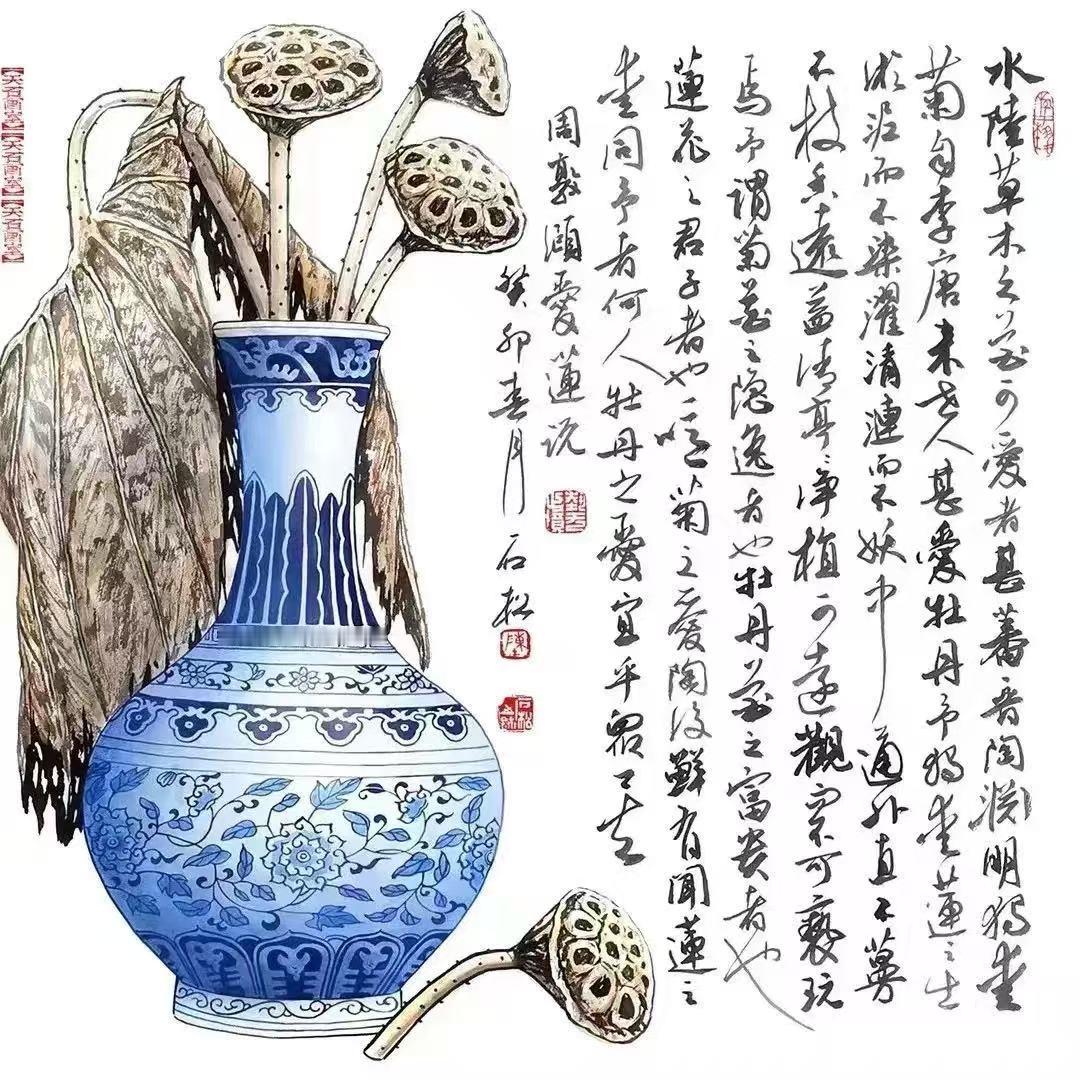 水陸草木之花可愛者甚蕃晋陶淵明獨爱
菊自李唐来世人甚愛牡丹予獨爱蓮之出
淤泥而不染濯清漣而不妖中通外直不蔓
不枝香遠益清亭亭净植可遠觀而不可褻玩
焉予謂菊花之隐逸者也牡丹花之富贵者也
蓮花之君子者也噫菊之愛陶後鮮有聞蓮之
爱同予者何人牡丹之愛宜乎眾矣
周敦頤愛蓮说
癸卯春月石松
陳
石松
【天石画室】【天石画室】【天石画室】